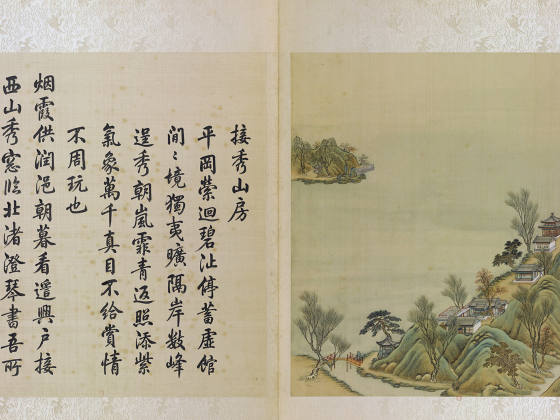 接秀山房
平岡縈迴碧沚停蓄虛館
閒〻境獨夷曠隔岸数峰
逞秀朝嵐霏青返照添紫
氣象萬千真目不給賞情
不周玩也
烟霞供润浥朝暮看遥興户接
西山秀窓临北渚澄琴書吾所